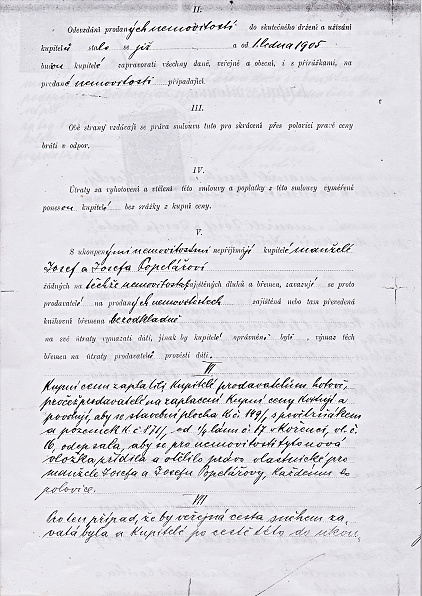 II.
Odevzdání prodaných nemovitostí do skutečného držení a užívání
kupitelů stalo se již a od 1. ledna 1905
budou kupitelé zapravovati všechny daně, veřejné a obecní, i s přirážkami, na
prodané nemovitosti připadající.
III.
Obě strany vzdávají se práva smlouvu tuto pro zkrácení přes polovici pravé ceny
bráti v odpor.
IV.
Útraty za vyhotovení a stížení této smlouvy a poplatky z této smlouvy vyměřené
ponesou kupitelé bez srážky z kupní ceny.
V.
S ukoupenými nemovitostmi nepřijímají kupitelé manželé
Josef a Josefa Popelářovi
žádných na těchže nemovitostech zajištěných dluhů a břemen, zavazují se proto
prodavatelé na prodaných nemovitostech zajištěná nebo tam převedená
knihovní břemena bezodkladně
na své útraty vymazati dáti, jinak by kupitelé oprávněni byli, výmaz těch
břemen na útraty prodavatelů provésti dáti.
VI
Kupní cenu zaplatili kupitelé prodavatelům hotově,
pročež prodavatelé na zaplacení kupní ceny kvitují a
povolují, aby se stavební plocha
a pozemek od 1/4 lánu č. 17 v Kořenci, vl. č.
16, odepsala, aby se pro nemovitosti tyto nová
vložka zřídila a vložilo právo vlastnické pro
manžele Josefa a Josefu Popelářovy, každému to
polovice.
VII
Pro ten případ, že by veřejná cesta sněhem za-
vátá byla a kupitelé po cestě této do